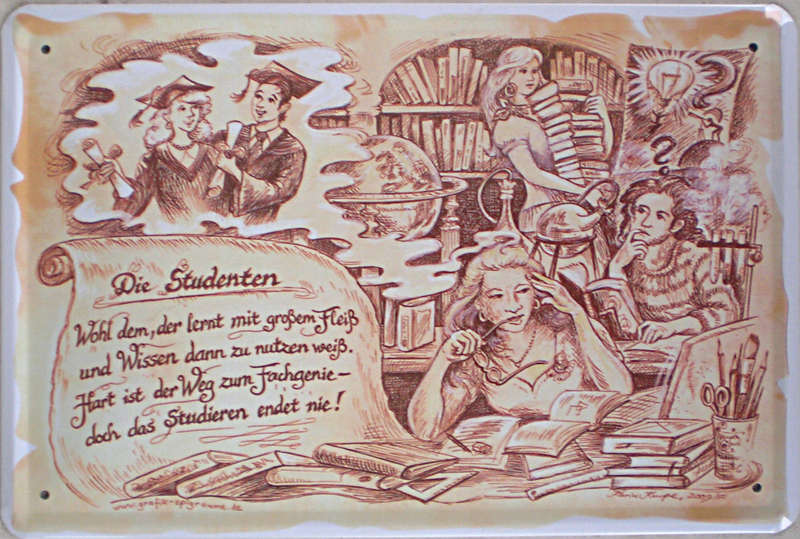 Die Studenten
Wohl dem, der lernt mit großem Fleiß
und Wissen dann zu nutzen weiß.
Hart ist der Weg zum Fachgenie –
doch das Studieren endet nie!